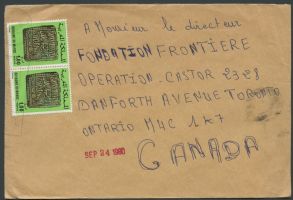 A Monsieur le directeur
FONDATION FRONTIERE
OPERATION-CASTOR 2328
DANFORTH AVENUE TORONTO
ONTARIO M4C 1K7
CANADA
SEP 24 1980